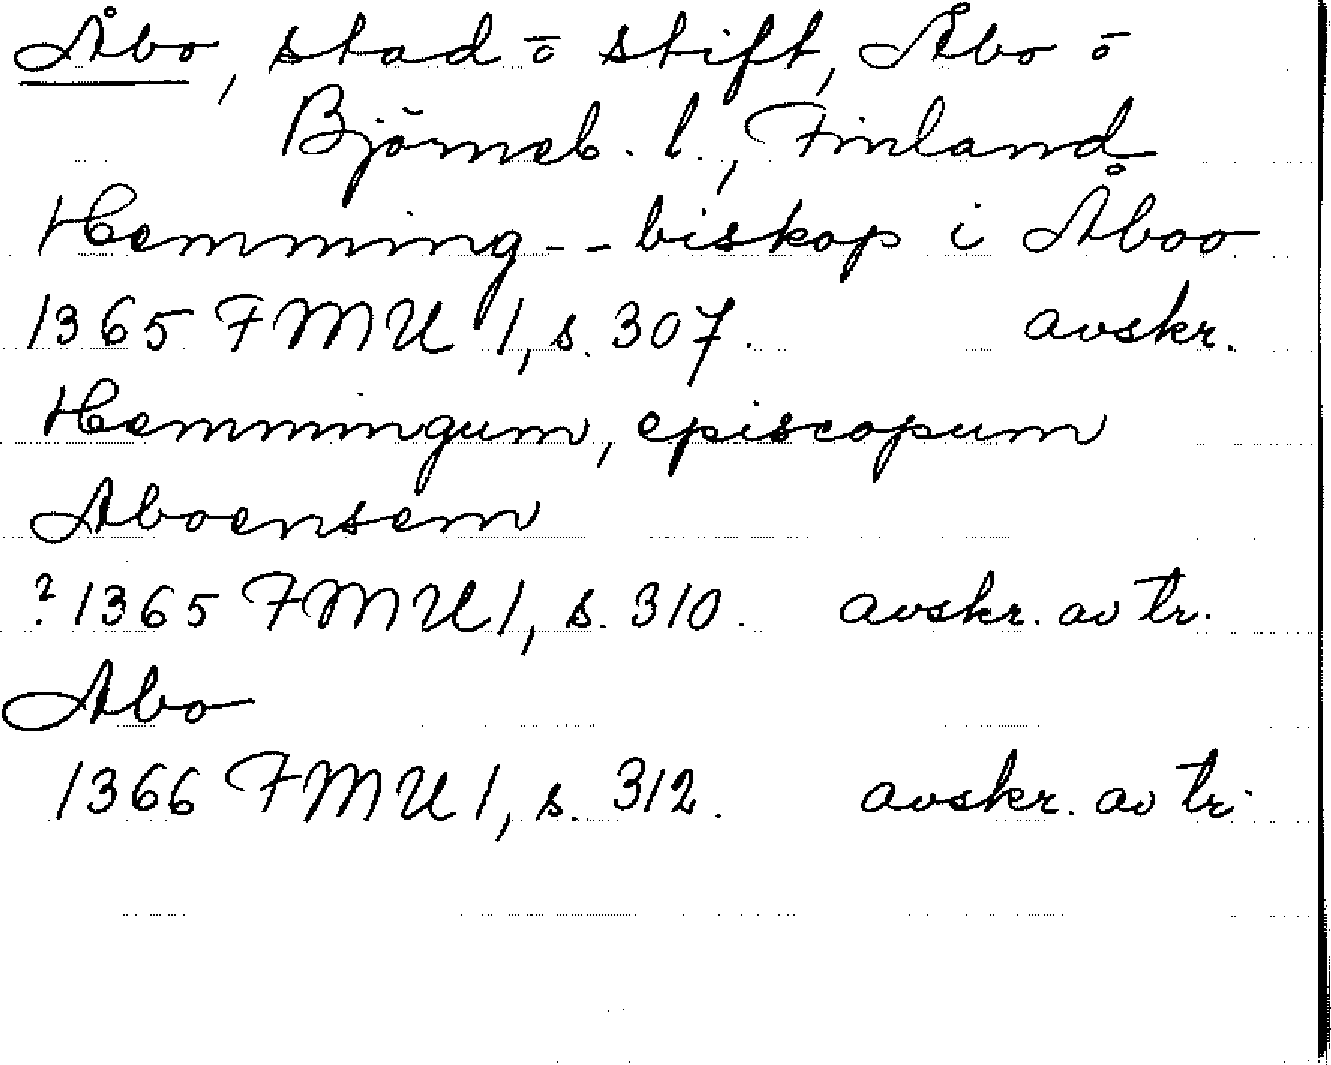 Åbo, stad o stift, Åbo o
Björneb. l., Finland
Hemming -- biskop i Åboo
1365 FMU 1, s. 307. avskr.
Hemmingum, episcopum
Aboensem
? 1365 FMU 1, s. 310. avskr. av tr.
Abo
1366 FMU 1, s. 312. avskr. av tr.